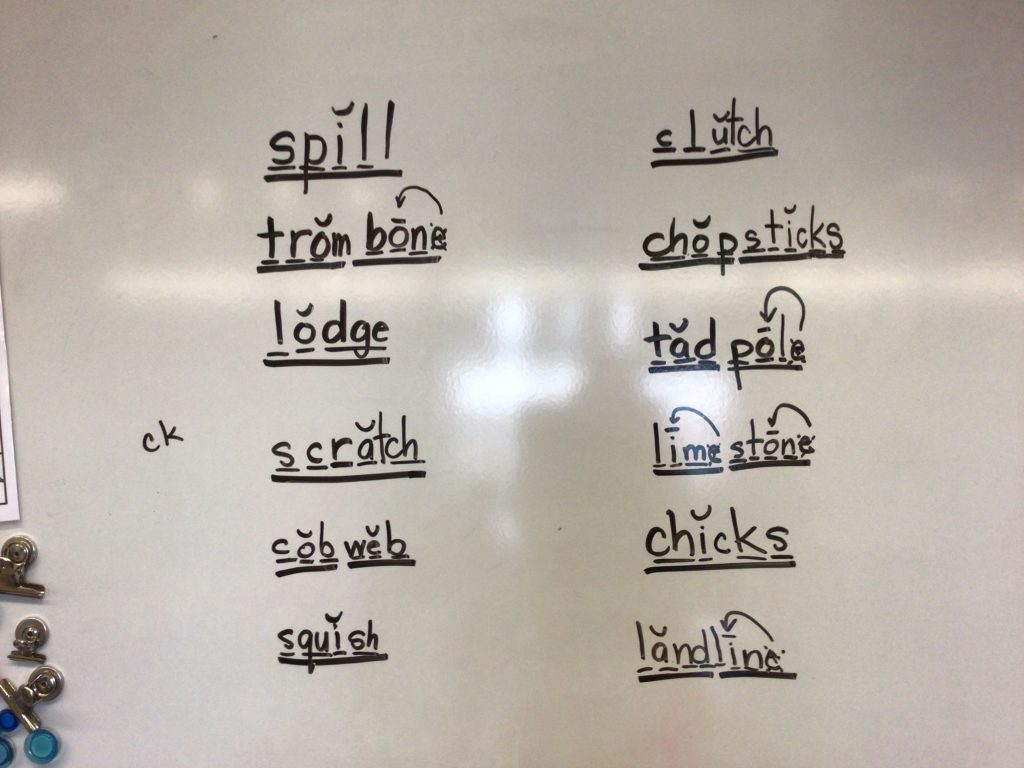 spĭll
trŏm bōne
lŏdge
ck
scrătch
cŏb wĕb
squĭsh
clŭtch
chŏpstĭcks
tăd pōle
līme stōne
chĭcks
lăndlīne